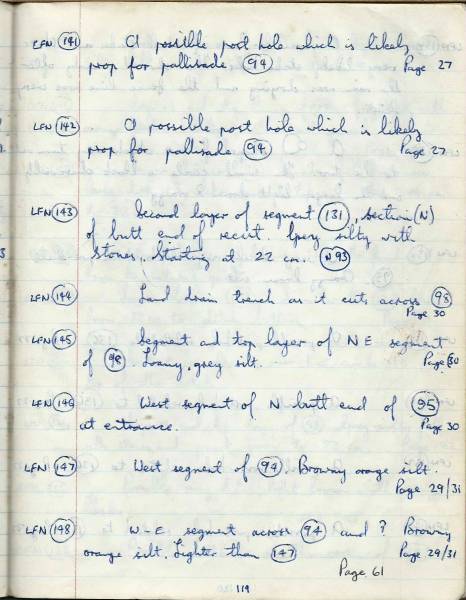 LFN 141 A possible post hole which is likely
prop for pallisade 94 Page 27
LFN 142 A possible post hole which is likely
prop for pallisade 94 Page 27
LFN 143 Second layer of segment 131, section (N)
of butt end of recut. Grey silty with
stones, Starting at 22 cm. N.93
LFN 144 Land drain trench as it cuts across 98
Page 30
LFN 145 Segment and top layer of N E segment
of 98. Loamy, grey silt. Page 30
LFN 146 West segment of N butt end of 95
at entrance. Page 30
LFN 147 West segment of 94. Browny orange silt.
Page 29/31
LFN 148 W-E segment across 94 and ? Browny
orange silt. Lighter than 147 Page 29/31
Page 61
119